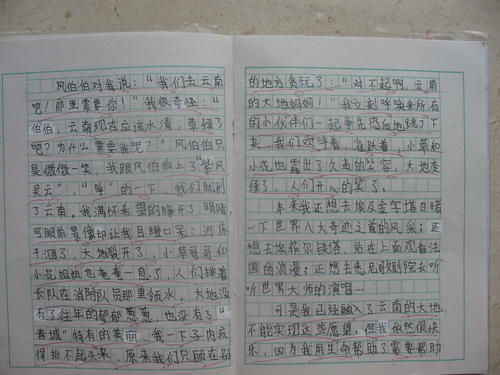 风伯伯对我说：“我们去云南
吧！那里需要你！”我很奇怪：“
伯伯，云南现在应该水清，草绿了
吧？为什么需要我呢？”风伯伯只
是微微一笑，我跟风伯伯上了“紫风
灵云”，“咩”的一下，我们就到
了云南。我满怀希望的睁开了眼睛
可眼前景像却让我目瞪口呆：河床
干涸了，大地裂开了，小草哥哥和
小花姐姐也奄奄一息了，人们排着
长队在消防队员那里领水，大地没
有了往年的郁郁葱葱，也没有了“
春城”特有的美丽。我一下子内疚
得抬不起头来，原来我们只顾在别
的地方贪玩了：“对不起啊，云南
的大地妈妈！”我立刻呼唤来所有
的小伙伴们一起争先恐后地跳了下
来，我们滚着，跳跃着，小草和
小花也露出了久违的笑容，大地变
绿了，人们开心的笑了。
本来我还想去埃及金字塔目睹
一下世界八大奇迹之首的风采；还
想去埃菲尔铁塔，站在上面观看法
国的浪漫；还想去悉尼歌剧院去听
听世界大师的演唱……
可是我已经融入了云南的大地，
不能实现这些愿望，但我依然很快
乐，因为我用生命帮助了需要帮助